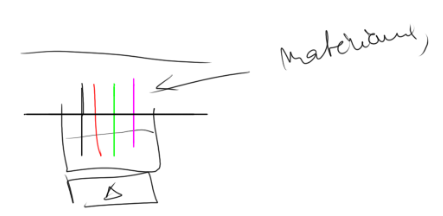 matériaux,
Δ